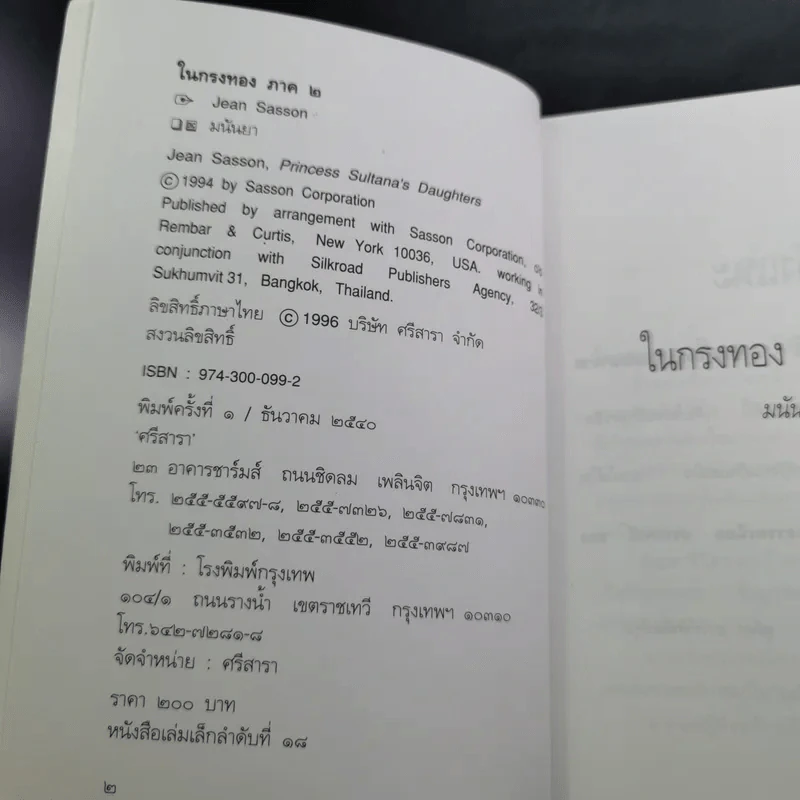 ในกรงทอง ภาค ๒
Jean Sasson
มนันยา
Jean Sasson, Princess Sultana's Daughters
© 1994 by Sasson Corporation
Published by arrangement with Sasson Corporation, c/o
Rembar & Curtis, New York 10036, USA. working in
conjunction with Silkroad Publishers Agency,
Sukhumvit 31, Bangkok, Thailand.
ลิขสิทธิ์ภาษาไทย © 1996 บริษัท ศรีสารา จำกัด
สงวนลิขสิทธิ์
ISBN : 974-300-099-2
พิมพ์ครั้งที่ ๑ / ธันวาคม ๒๕๔๐
'ศรีสารา'
๒๓ อาคารชาร์มส์ ถนนชิดลม เพลินจิต กรุงเทพฯ ๑๐๓๓๐
โทร. ๒๕๕-๕๕๙๗-๘, ๒๕๕-๗๓๒๖, ๒๕๕-๗๘๓๑,
๒๕๕-๓๕๓๒, ๒๕๕-๓๕๕๒, ๒๕๕-๓๙๘๗
พิมพ์ที่ : โรงพิมพ์กรุงเทพ
๑๐๔/๑ ถนนรางน้ำ เขตราชเทวี กรุงเทพฯ ๑๐๓๑๐
โทร.๖๔๒-๗๒๘๑-๘
จัดจำหน่าย : ศรีสารา
ราคา ๒๐๐ บาท
หนังสือเล่มเล็กลำดับที่ ๑๘
๒
ในกรงทอง
มนัน